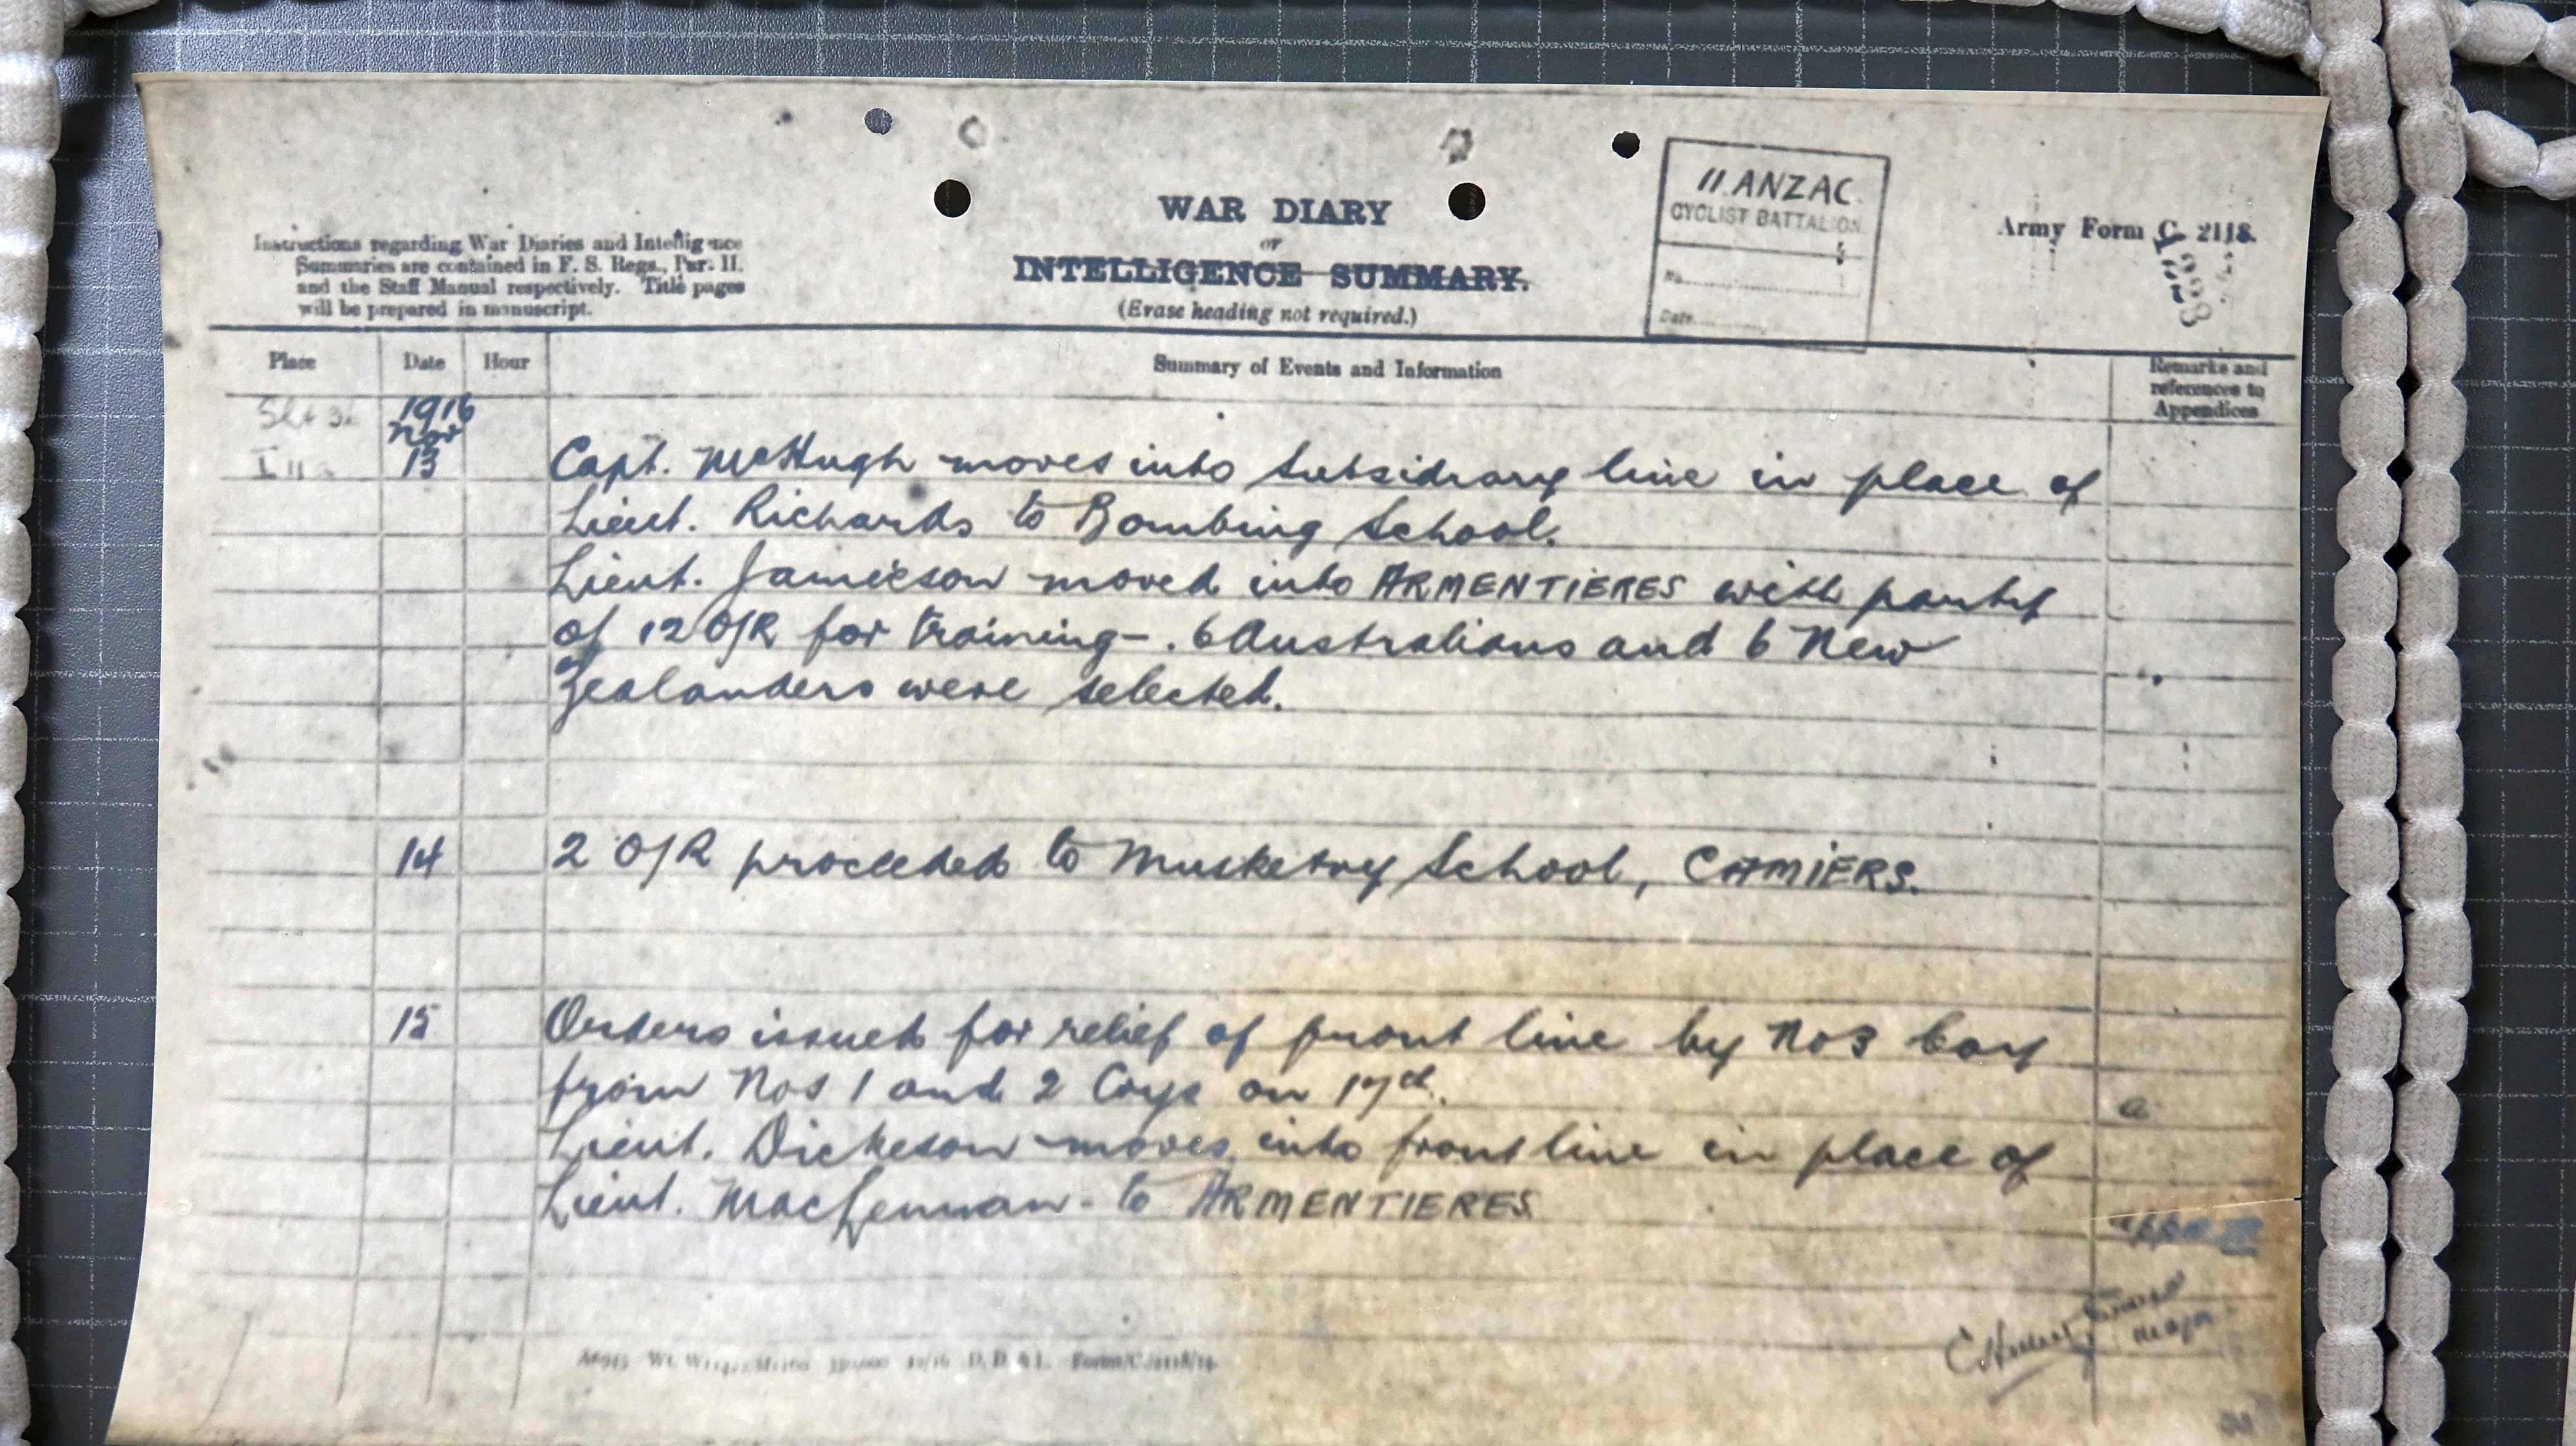 WAR DIARY
or
INTELLIGENCE SUMMARY.
(Erase heading not required.)
Instructions regarding War Diaries and Intelligence
Summaries are contained in F. S. Regs., Par. II.
and the Staff Manual respectively. Title pages
will be prepared in manuscript.
11 ANZAC
CYCLIST BATTALION
No.
Date
Army Form C. 2118.
Place Date Hour Summary of Events and Information Remarks and
references to
Appendices
1916
Nov
13 Capt. McHugh moves into Subsidiary line in place of
Lieut. Richards to Bombing School.
Lieut. Jamieson moved into ARMENTIERES with party
of 12 O/R for training - . 6 Australians and 6 New
Zealanders were selected.
14 2 O/R proceeded to Musketry School, CAMIERS.
15 Orders issued for relief of front line by No 3 Coy
from Nos 1 and 2 Coys on 17th.
a
Lieut. Dickeson moves into front line in place of
Lieut. MacLennan - to ARMENTIERES
Major